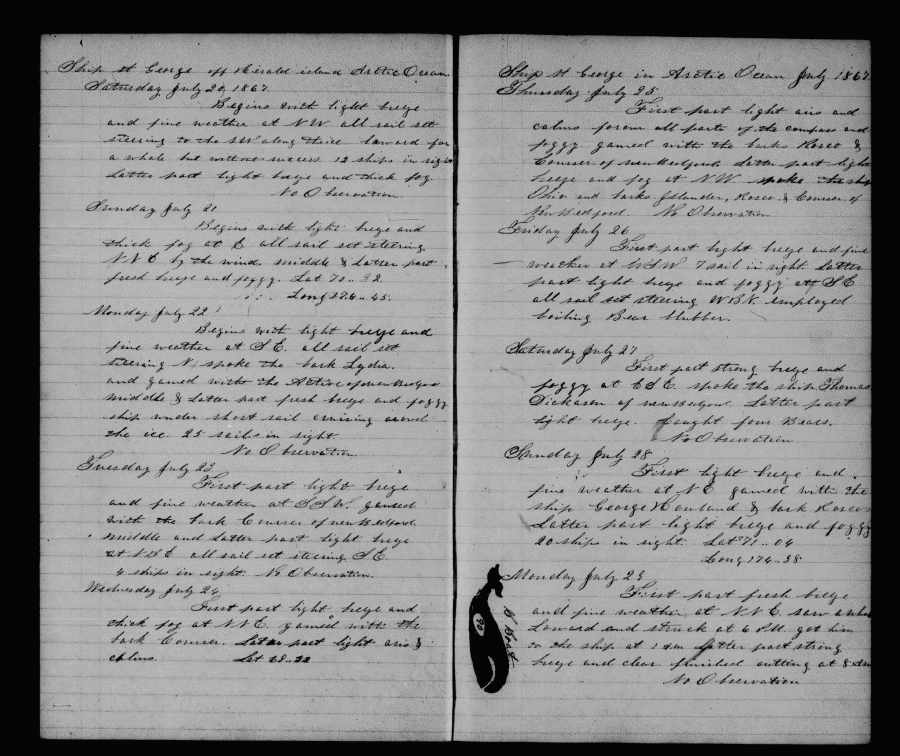 Ship St George off Herald island Arctic Ocean
Saturday July 20, 1867.
Begins with light breeze
and fine weather at N.W. all sail set
steering to the SW along thick
a whale but without success 12 ships in sight
Latter part light breeze and thick fog
No Observation
Sunday July 21
Begins with light breeze and
thick fog at E all sail set steering
N N E by the wind middle & Latter part
fresh breeze and foggy. Lat 70.. 32
Long 174..45.
Monday July 22
Begins with light breeze and
fine weather at S E. all sail set
steering N. spoke the bark Lydia.
and gamed with the Active of new Bedford
middle & Latter part fresh breeze and foggy
ship under short sail cruising around
the ice. 25 sail in sight
No Observation
Tuesday July 23
First part light breeze
and fine weather at S.S.W. gamed
with the bark Courser of new Bedford
middle and Latter part light breeze
at N.E all sail set steering S E.
4 ships in sight. No Observation.
Wednesday July 24
First part light breeze and
thick fog at N E. gamed with the
bark Courser. Later part light airs &
calms. Lat 68..22
Ship St George in Arctic Ocean July 1867.
Thursday July 25
First part light airs and
calms from all parts of the compass and
foggy gamed with the barks Rosco &
Courser of new Bedford Latter part light
breeze and fog at N.W. spoke the ship
Ohio and barks Islander, Rosco & Courser of
New Bedford. No Observation
Friday July 26
First part light breeze and fine
weather at W S W 7 sail in sight. Latter
part light breeze and foggy at S E
all sail set steering W B N. employed
boiling Bear blubber.
Saturday July 27
First part strong breeze and
foggy at E S E. spoke the ship Thomas
Dickason of new Bedford. Latter part
light breeze. Caught four Bears.
No Observation
Sunday July 28
First light breeze and
fine weather at N E gamed with the
ship George Howland & bark Rosco
Latter part light breeze and foggy
20 ships in sight. Lat 70..04
Long 174..38
Monday July 29
First part fresh breeze
and fine weather at N N E. saw a whale
Loward and struck at 6 P.M. got him
to the ship at 1 Am Latter part strong
breeze and clear finished cutting at 8 Am
No Observation
90
Boat